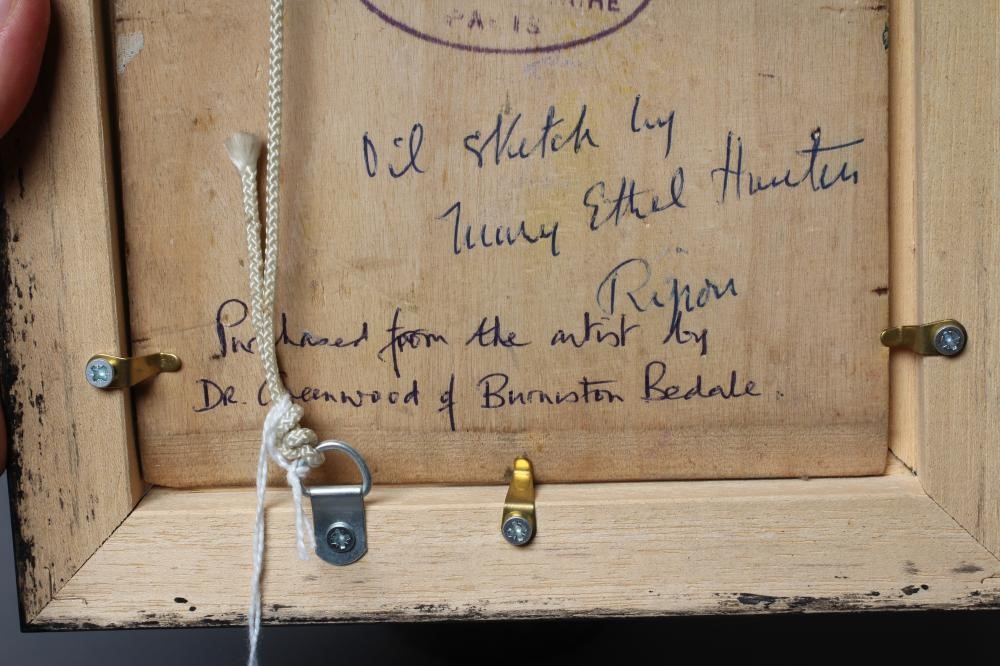 PARIS
Oil sketch by
Mary Ethel Hunter
Ripon
Purchased from the artist by
Dr. Greenwood of Burniston Bedale.